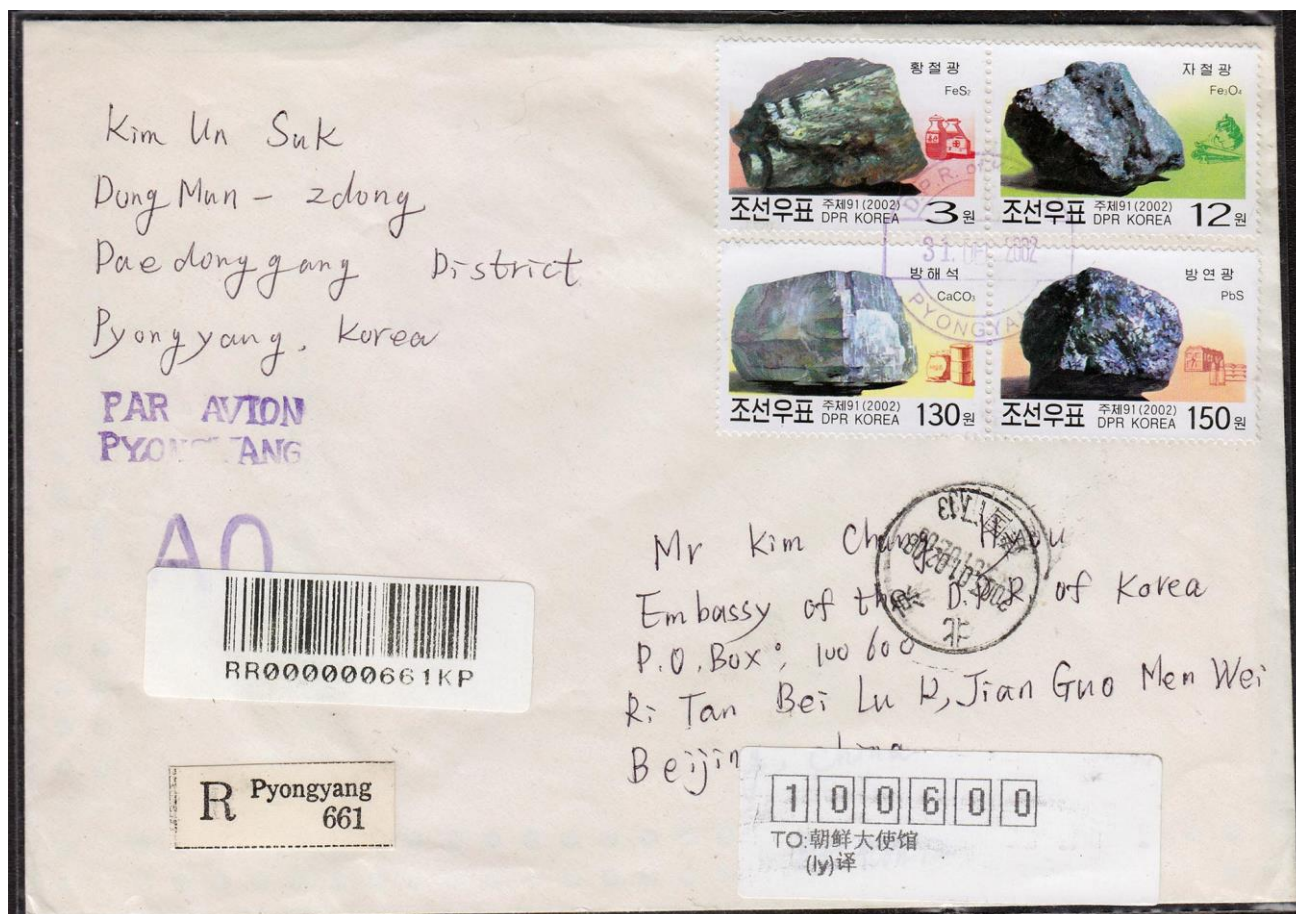 Kim Un Suk
Dong Mun - 2dong
Dae dong gang District
Pyongyang, Korea
PAR AVION
PYONGYANG
AO
RR000000661KP
R Pyongyang
661
황철광
FeS₂
조선우표 주체91(2002)
DPR KOREA 3원
자철광
Fe₃O₄
조선우표 주체91(2002)
DPR KOREA 12원
방해석
CaCO₃
조선우표 주체91(2002)
DPR KOREA 130원
방연광
PbS
조선우표 주체91(2002)
DPR KOREA 150원
D.P.R. of
31. 2002
PYONGYA
北京
Mr Kim Chang
Embassy of the D.P.R. of Korea
P.O. Box: 100600
Ri Tan Bei Lu Jian Guo Men Wei
Beijing, China
100600
TO:朝鲜大使馆
(ly)译